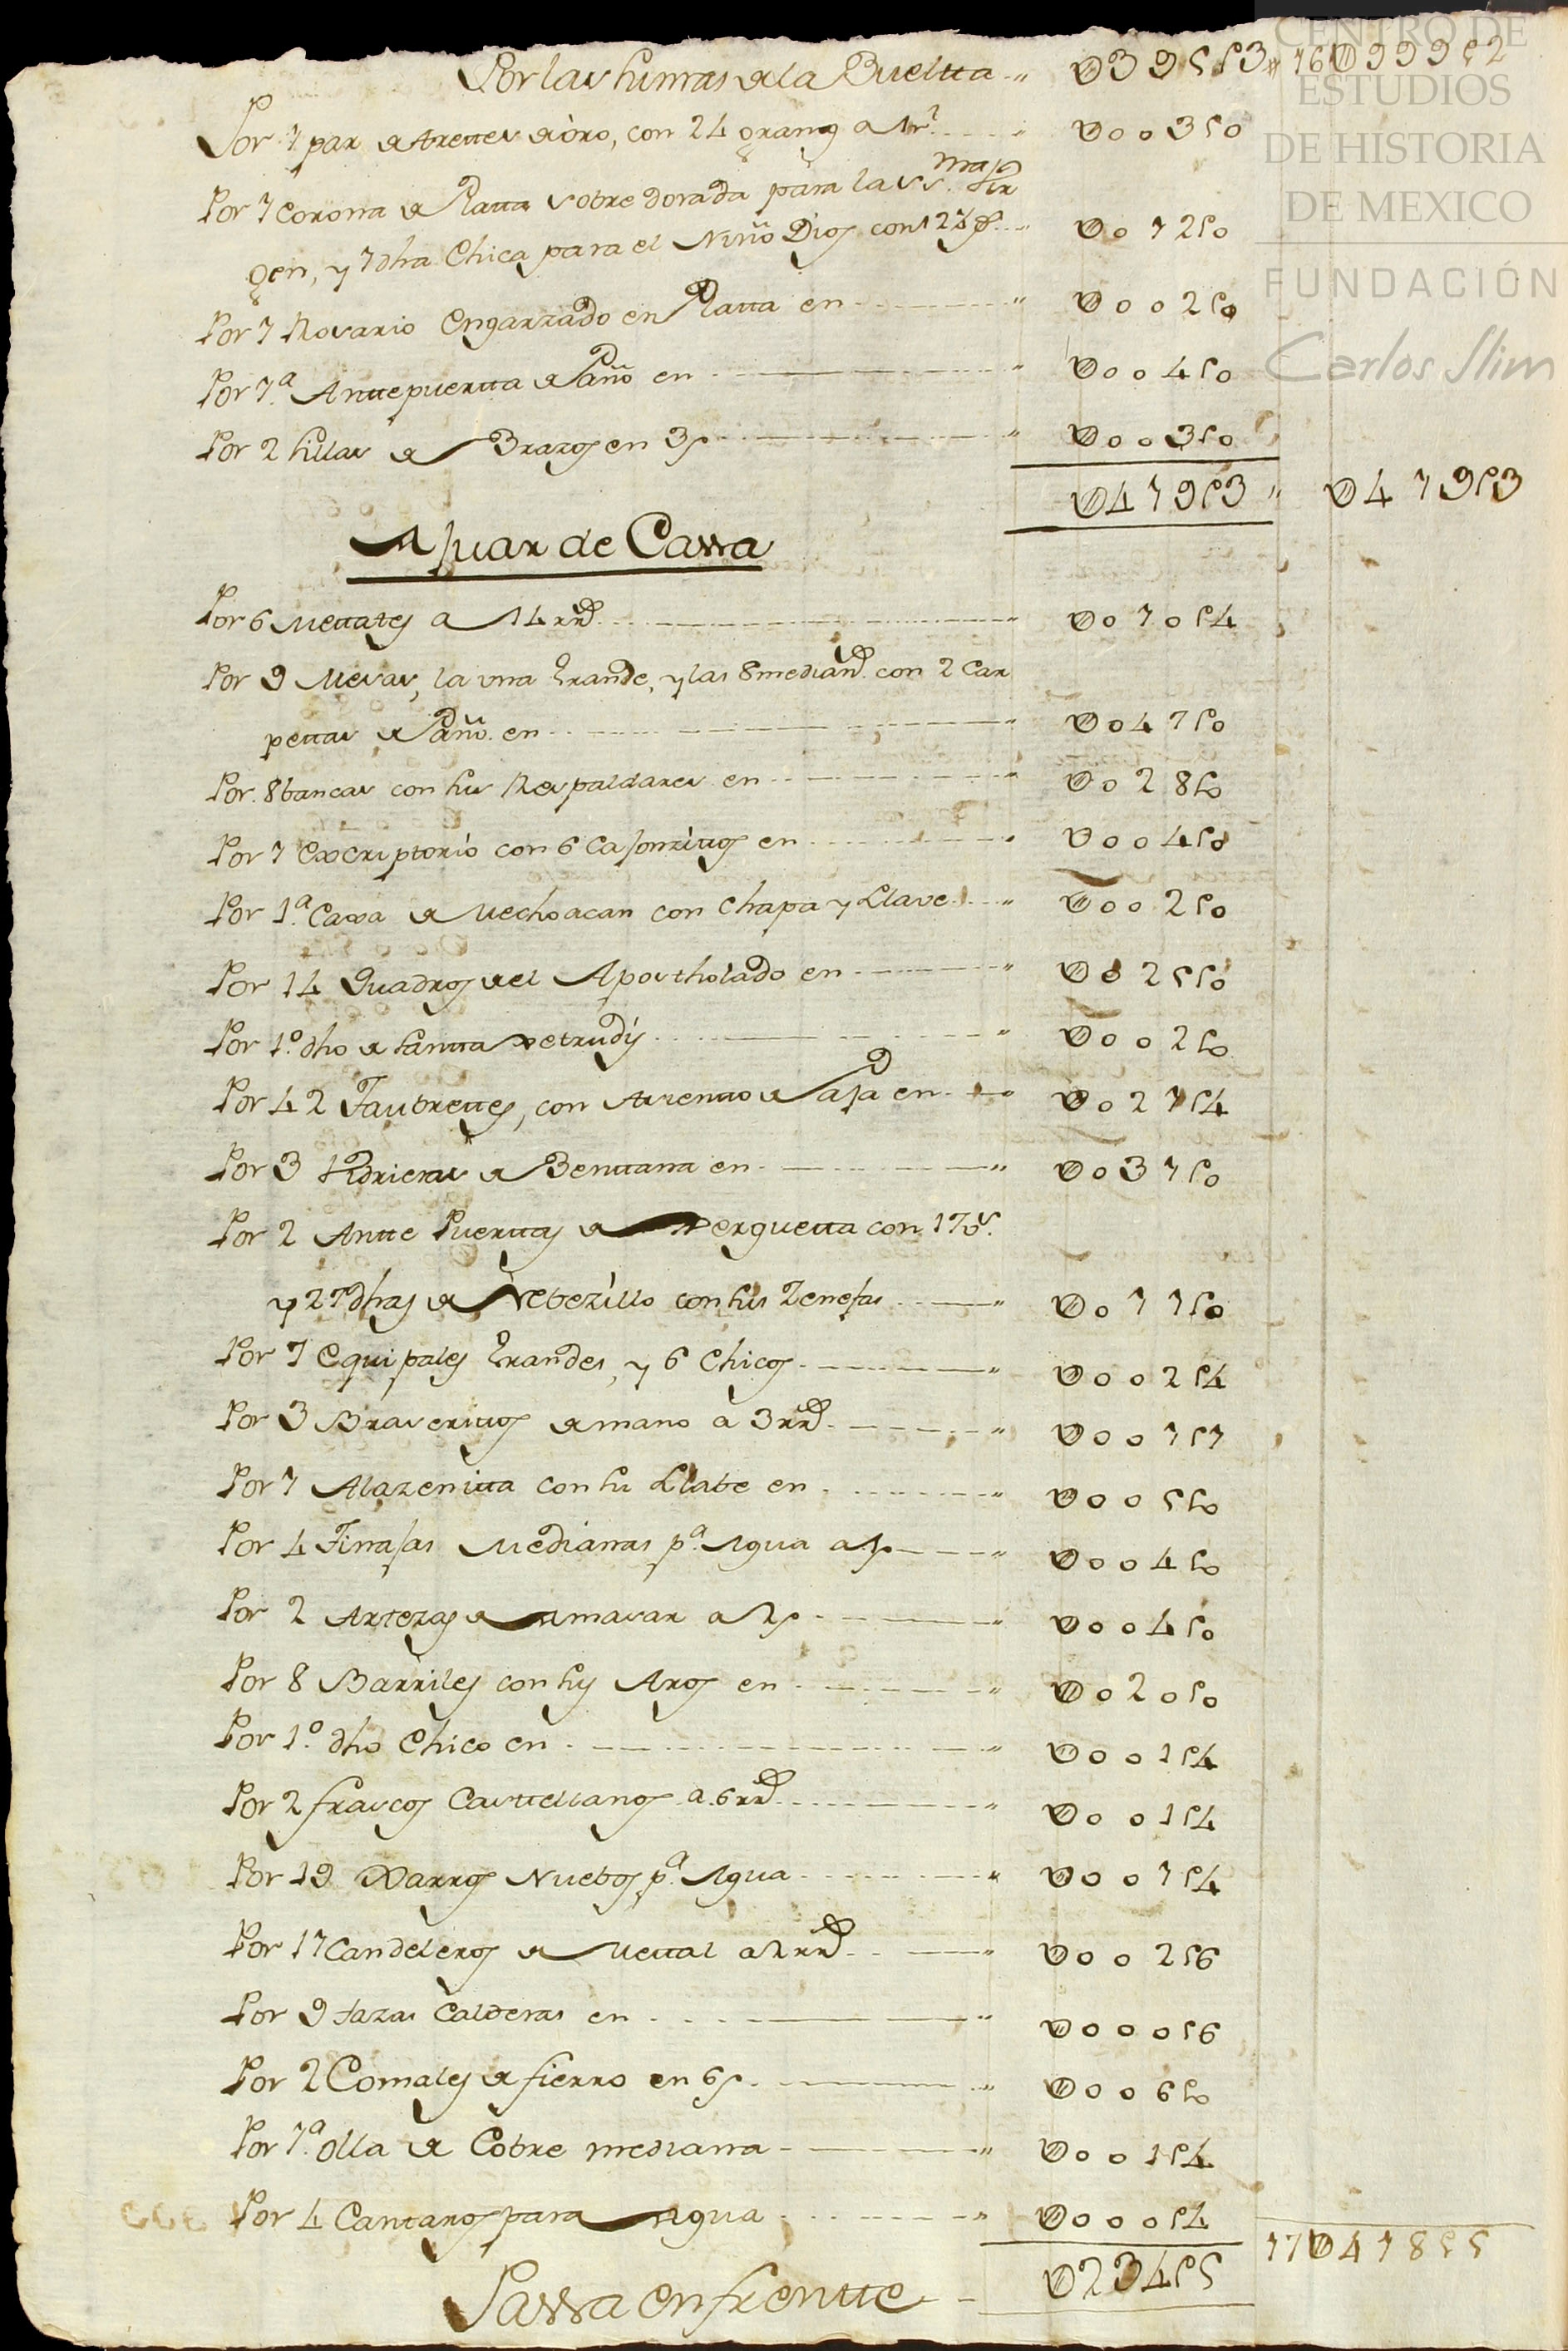 CENTRO DE
ESTUDIOS
DE HISTORIA
DE MEXICO
FUNDACIÓN
Carlos Slim
Por las sumas de la Bueltta " U395 ʃ 3 " 16U999 ʃ 2
Por 1 par de Aretes de òro, con 24 granos a 1 rl. U003 ʃ 0
Por 1 Corona de Platta sobre dorada para la SS.ma Vir
gen, y 1 dha Chica para el Niño Dios con 12 ps. U012 ʃ 0
Por 1 Rosario Engarzado en Platta en " U002 ʃ 0
Por 1.a Anttepuertta de Paño en " U004 ʃ 0
Por 2 sillas de Brazos en 3 ps " U003 ʃ 0
U419 ʃ 3 " U419 ʃ 3
Ajuar de Cassa
Por 6 Mettates a 14 rrs. " U010 ʃ 4
Por 9 Mesas, la una Grande, y las 8 medianas. con 2 Car
pettas de Paño. en " U047 ʃ 0
Por. 8 bancas con sus Respaldares en " U028 ʃ 0
Por 1 Escriptorio con 6 Cajonzittos en " U004 ʃ 0
Por 1.a Caxa de Mechoacan con Chapa y Llave " U002 ʃ 0
Por 14 Quadros del Apostholado en " U025 ʃ 0
Por 1.o dho de santta Xetrudis " U002 ʃ 0
Por 42 Taubrettes, con Asientto de Paja en " U021 ʃ 4
Por 3 Vidrieras de Benttana en " U031 ʃ 0
Por 2 Antte Puerttas de Xerguetta con 17 vs.
y 2 dhas de Nebezillo con sus Zenefas " U011 ʃ 0
Por 7 Equipales Grandes, y 6 Chicos " U002 ʃ 4
Por 3 Braserittos de mano a 3 rrs. " U001 ʃ 1
Por 1 Alazenitta con su Llabe en " U005 ʃ 0
Por 4 Tinajas Medianas p.a Agua a ps " U004 ʃ 0
Por 2 Artezas de Amasar a 2 ps " U004 ʃ 0
Por 8 Barriles con sus Aros en " U020 ʃ 0
Por 1.o dho Chico en " U001 ʃ 4
Por 2 frascos Casttellanos a 6 rrs. " U001 ʃ 4
Por 19 Xarros Nuebos p.a Agua " U001 ʃ 4
Por 17 Candeleros de Mettal a 2 rrs. " U002 ʃ 6
Por 9 tazas Calderas en " U000 ʃ 6
Por 2 Comales de fierro en 6 ps. " U006 ʃ 0
Por 1.a Olla de Cobre mediana " U001 ʃ 4
Por 4 Cantaros para Agua " U000 ʃ 4
Passa en frentte U234 ʃ 5 17U418 ʃ 5